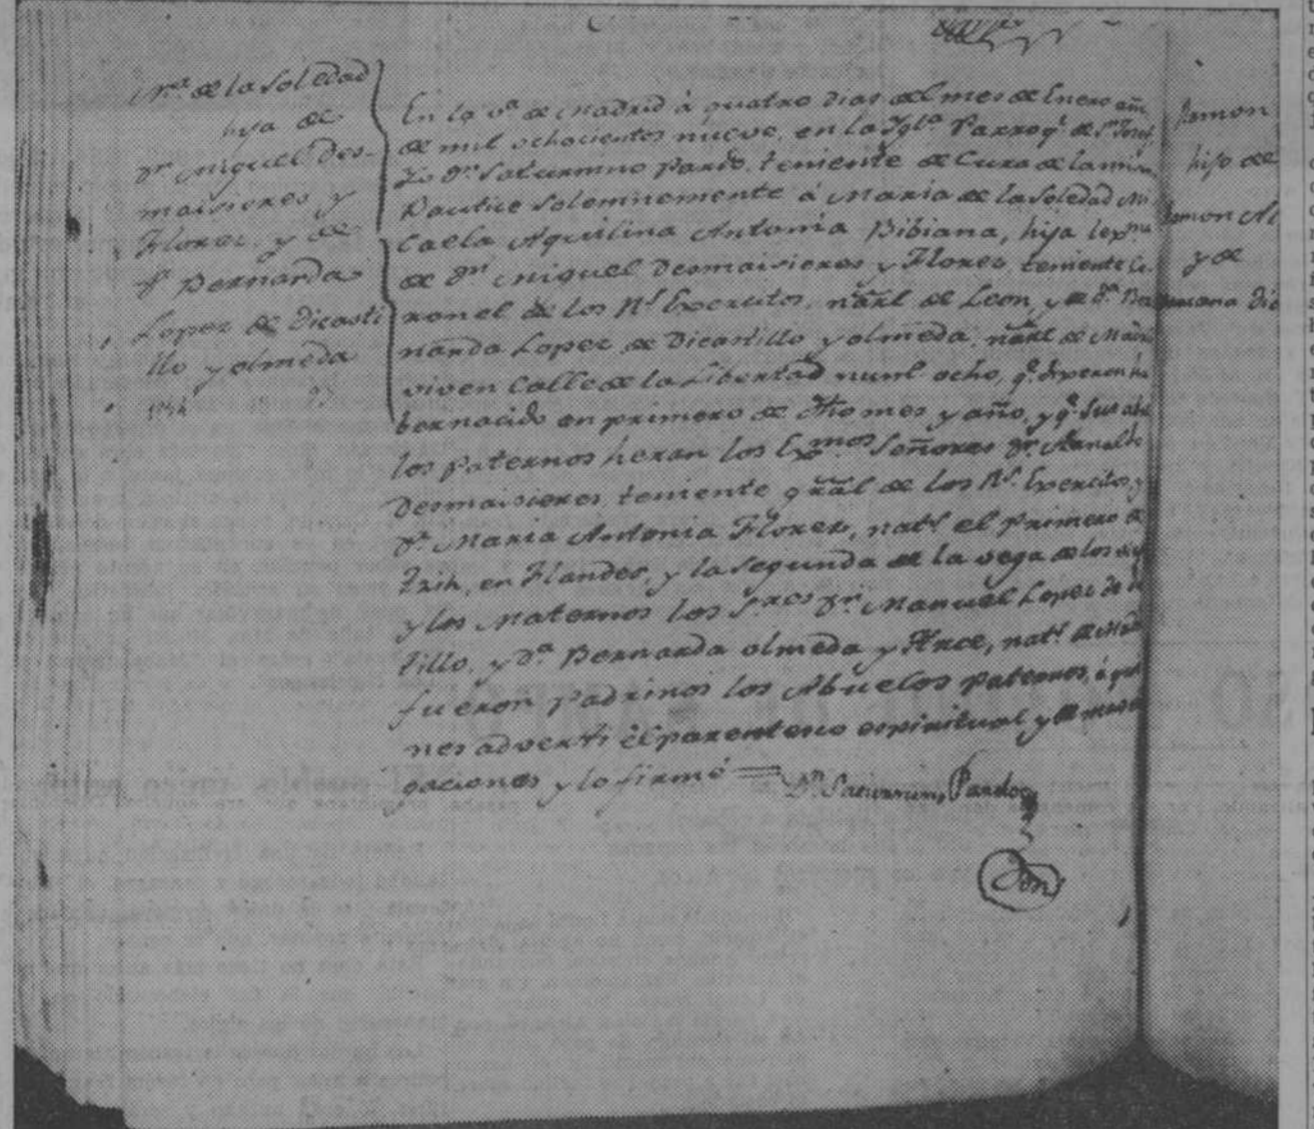 Mª de la Soledad
hija de
Dn Miguel Des-
maisieres y
Flores, y de
Dª Bernarda
Lopez de Dicasti
llo y olmeda
En la Vª de Madrid á quatro dias del mes de Enero año
de mil ochocientos nueve, en la Yglª Parroql de Sn Josef,
Yo Dn Saturnino Pardo, teniente de Cura de la misma
Bautice Solemnemente á Maria de la Soledad Mi
Caela Aquilina Antonia Bibiana, hija lexma
de Dn Miguel Desmaisieres y Flores, teniente Co
ronel de los Rs Exercitos, natl de Leon, y de Dª Ber
narda Lopez de Dicastillo y olmeda, natl de Madd
viven Calle de la Libertad num1 ocho, qe dixeron ha
ber nacido en primero de dho mes y año, y qe sus abue
los paternos heran los Exmos Señores Dn Arnaldo
Desmaisieres, teniente gral de los Rs Exercitos, y
Dª Maria Antonia Flores, natl el primero de
en Flandes, y la Segunda de la vega de los
y los Maternos los Sres Dn Manuel Lopez de
tillo, y Dª Bernarda olmeda y Arce, natl de Madd
fueron Padrinos los Abuelos paternos, á quie
nes adverti el parentesco espiritual y
gaciones y lo firmé = Dn Saturnino Pardo
Ramon
hijo de
Ramon Al
y de